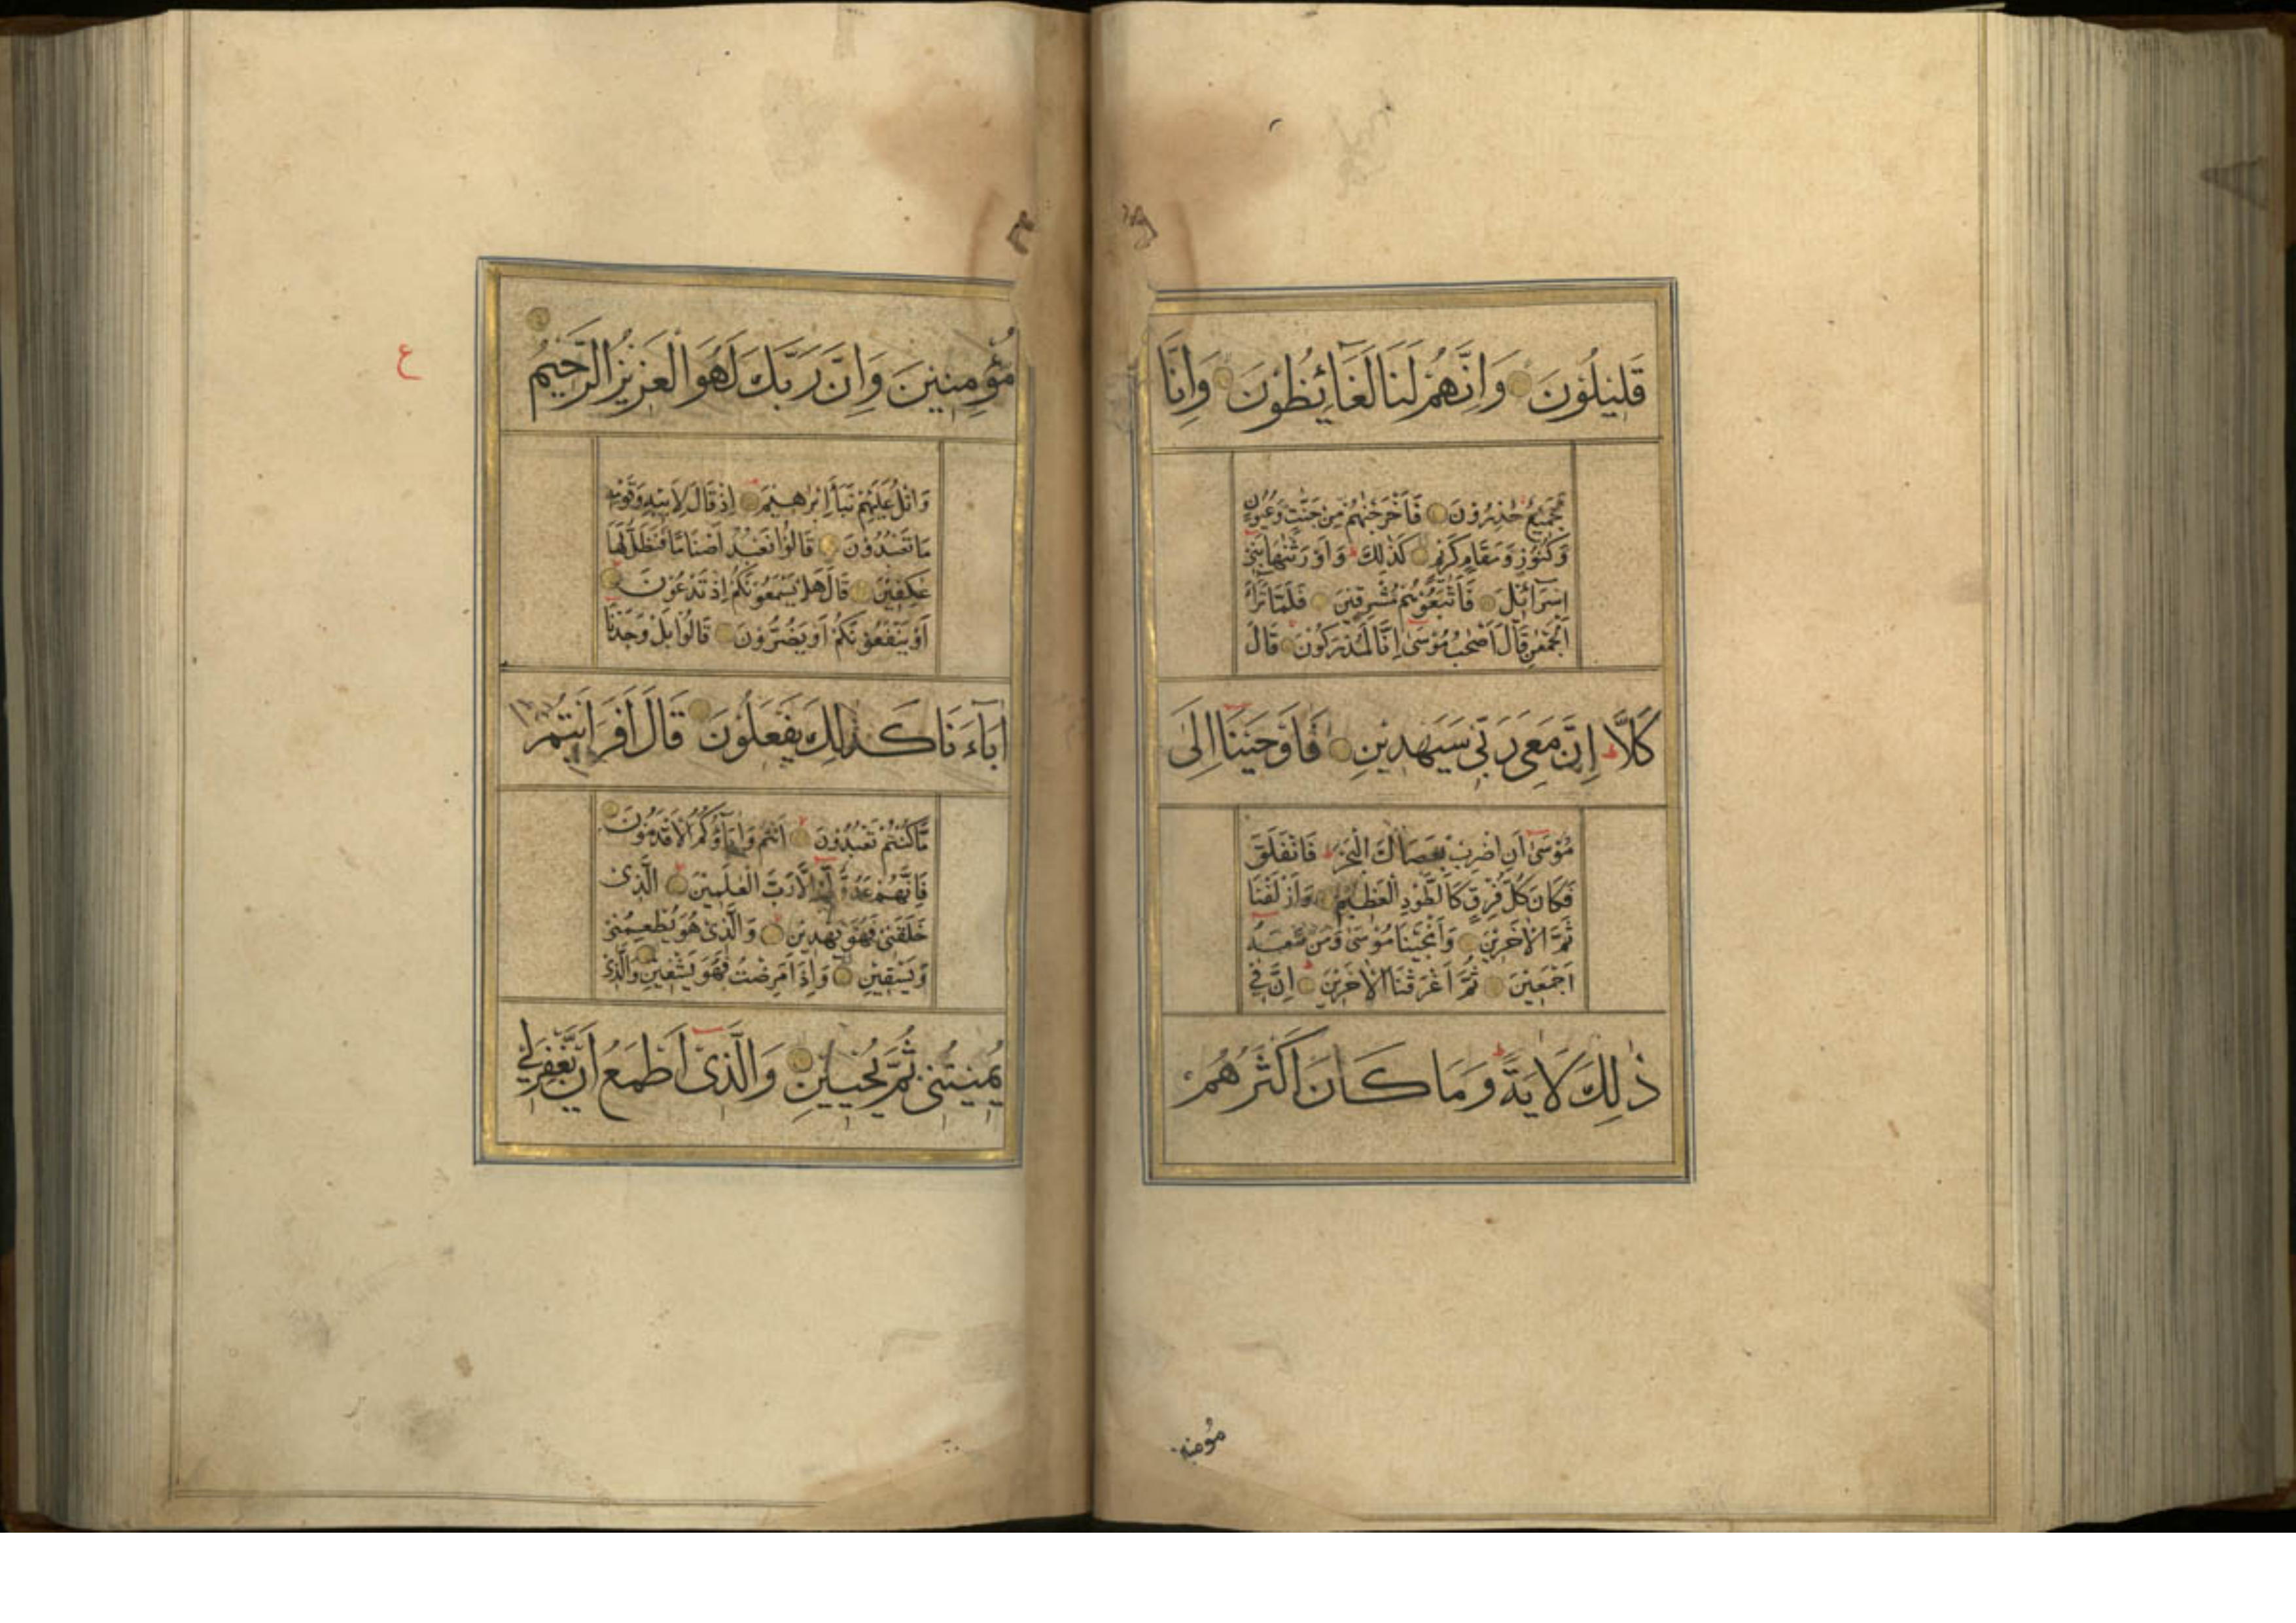 قَلِيلُونَ وَاِنَّهُمْ لَنَا لَغَآئِظُونَ وَاِنَّا
لَجَمِيعٌ حٰذِرُونَ فَاَخْرَجْنٰهُمْ مِنْ جَنّٰتٍ وَعُيُونٍ
وَكُنُوزٍ وَمَقَامٍ كَرِيمٍ كَذٰلِكَ ط وَاَوْرَثْنٰهَا بَنِي
اِسْرَآئِيلَ فَاَتْبَعُوهُمْ مُشْرِقِينَ فَلَمَّا تَرَآءَ
الْجَمْعٰنِ قَالَ اَصْحٰبُ مُوسٰى اِنَّا لَمُدْرَكُونَ قَالَ
كَلَّا ط اِنَّ مَعِيَ رَبِّي سَيَهْدِينِ فَاَوْحَيْنَا اِلٰى
مُوسٰى اَنِ اضْرِبْ بِعَصَاكَ الْبَحْرَ ط فَانْفَلَقَ
فَكَانَ كُلُّ فِرْقٍ كَالطَّوْدِ الْعَظِيمِ وَاَزْلَفْنَا
ثَمَّ الْاٰخَرِينَ وَاَنْجَيْنَا مُوسٰى وَمَنْ مَعَهُ
اَجْمَعِينَ ثُمَّ اَغْرَقْنَا الْاٰخَرِينَ اِنَّ فِي
ذٰلِكَ لَاٰيَةً ط وَمَا كَانَ اَكْثَرُهُمْ
مُؤمنين
مُؤْمِنِينَ وَاِنَّ رَبَّكَ لَهُوَ الْعَزِيزُ الرَّحِيمُ
ع
وَاتْلُ عَلَيْهِمْ نَبَأَ اِبْرٰهِيمَ اِذْ قَالَ لِاَبِيهِ وَقَوْمِهِ
مَا تَعْبُدُونَ قَالُوا نَعْبُدُ اَصْنَامًا فَنَظَلُّ لَهَا
عٰكِفِينَ قَالَ هَلْ يَسْمَعُونَكُمْ اِذْ تَدْعُونَ
اَوْ يَنْفَعُونَكُمْ اَوْ يَضُرُّونَ قَالُوا بَلْ وَجَدْنَا
اٰبَآءَنَا كَذٰلِكَ يَفْعَلُونَ قَالَ اَفَرَاَيْتُمْ
مَّا كُنْتُمْ تَعْبُدُونَ اَنْتُمْ وَاٰبَآؤُكُمُ الْاَقْدَمُونَ
فَاِنَّهُمْ عَدُوٌّ لِّي اِلَّا رَبَّ الْعٰلَمِينَ الَّذِي
خَلَقَنِي فَهُوَ يَهْدِينِ وَالَّذِي هُوَ يُطْعِمُنِي
وَيَسْقِينِ وَاِذَا مَرِضْتُ فَهُوَ يَشْفِينِ وَالَّذِي
يُمِيتُنِي ثُمَّ يُحْيِينِ وَالَّذِي اَطْمَعُ اَنْ يَّغْفِرَ لِي